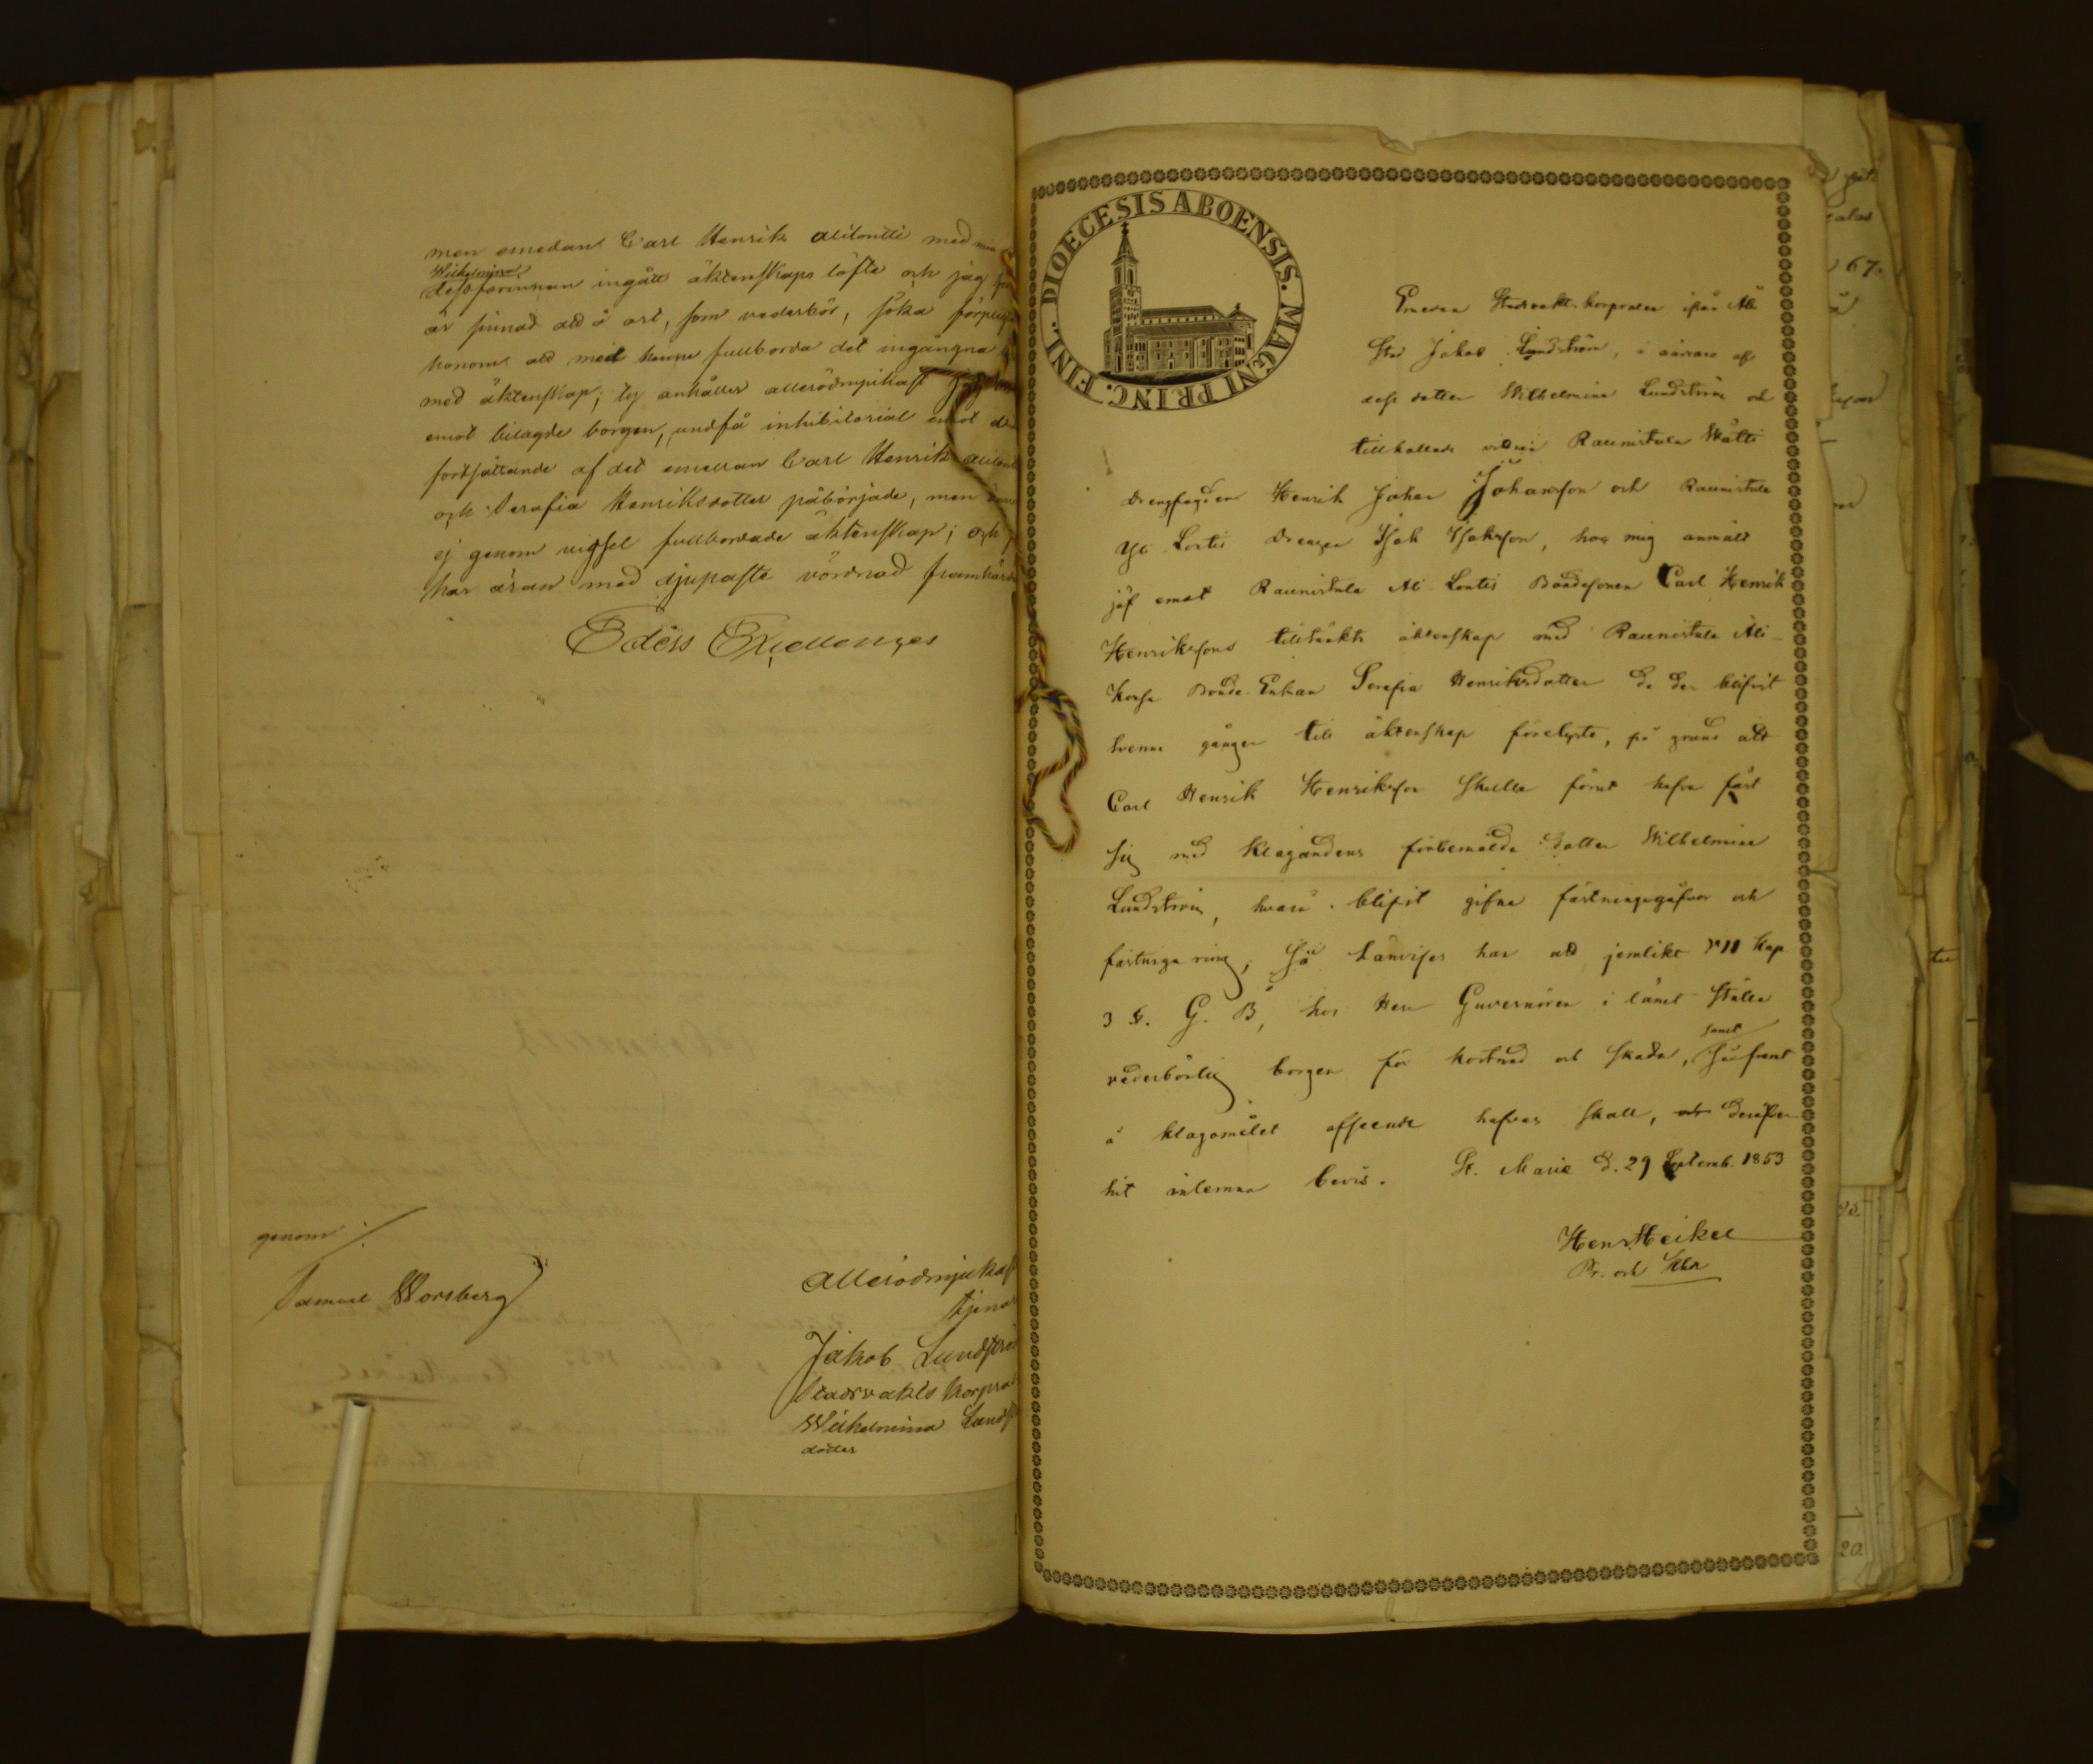 men emedan Carl Henrik Alilontti med min
Wilhelmina
dess förinnan ingått äktenskaps löfte och jag
är sinnad att å ort, som vederbör, söka
honom att med henne fullborda det ingångna
med äktenskap; ty anhåller allerödmjukast
emot bilagde borgen, undfå inhibitorial emot
fortsättande af det emellan Carl Henrik
och Serafia Henriksdotter påbörjade, men
ej genom vigsel fullbordade äktenskap; och
har äran med djupaste vördnad framhärda
Eders Excellences
genom:
Samuel Worsberg
allerödmjukast
tjenar
Jakob Lundströ
Stadsvakts korpra
Wilhelmina Lunds
döder
DIOECESIS ABOENSIS. MAGNI PRINC. FINL.
Emedan Stadsvakt-korpralen ifrån Åbo
Stad Jakob Lundström, i närvaro af
dess dotter Wilhelmina Lundström och
tillkallade vittnen Raunistula Skätti
drengfogden Henrik Johan Johansson och Raunistula
Yli Lontis drengen Isak Isaksson, hos mig anmält
jäf emot Raunistula Ali-Lontis Bondesonen Carl Henrik
Henrikssons tilltänkte äktenskap med Raunistula Ali-
Bonde Enkan Serafia Henriksdotter de der blifvit
tvenne gånger till äktenskap förelyste, på grund att
Carl Henrik Henriksson skulle förut hafva fäst
sig med klagandens förbemälde dotter Wilhelmina
Lundström, hvarå blifvit gifne fästningegåfvor och
fästninga ring; så hänvises han att jemlikt VII Kap
3 §. G. B, hos Herr Guvernören i länet ställa
vederbörlig borgen för kostnad och skada, såframt
å klagomålet afseende hafvas skall, samt deröfver
hit inlemna bevis. St. Marie d. 29 Septemb. 1853
Henr. Heikel
Pr. och Khde
67.
20